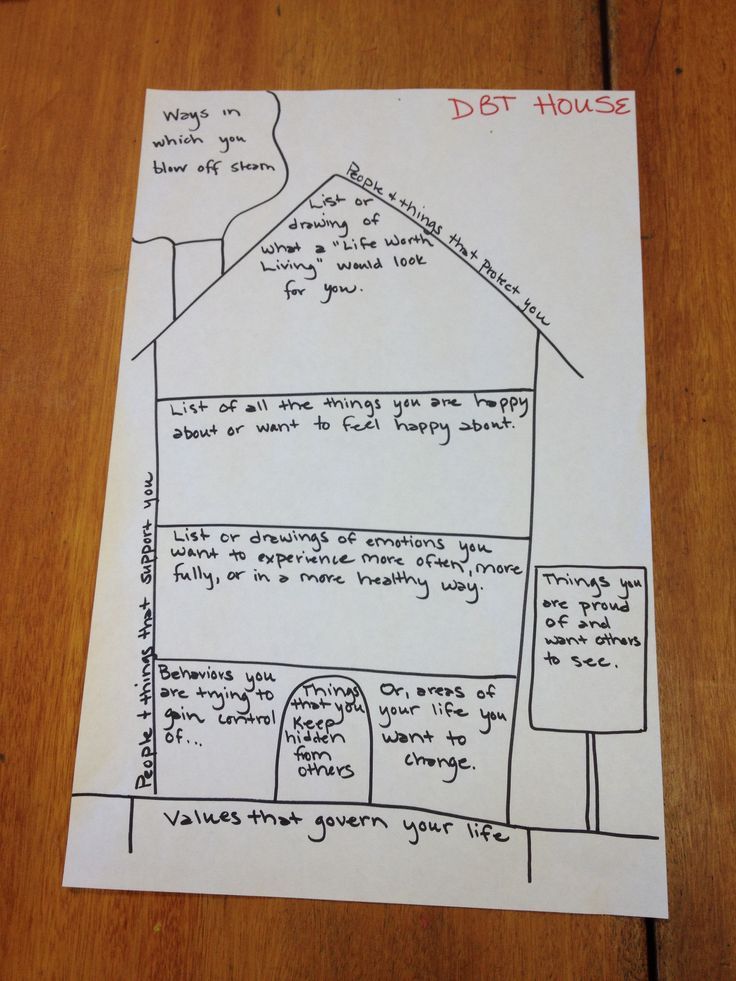 DBT HOUSE
Ways in
which you
blow off steam
People + things that protect you
List or
drawing of
what a "Life Worth
Living" would look
for you.
List of all the things you are happy
about or want to feel happy about.
List or drawings of emotions you
want to experience more often, more
fully, or in a more healthy way.
People + things that support you
Behaviors you
are trying to
gain control
of...
Things
that you
Keep
hidden
from
others
Or, areas of
your life you
want to
change.
Things you
are proud
of and
want others
to see.
Values that govern your life